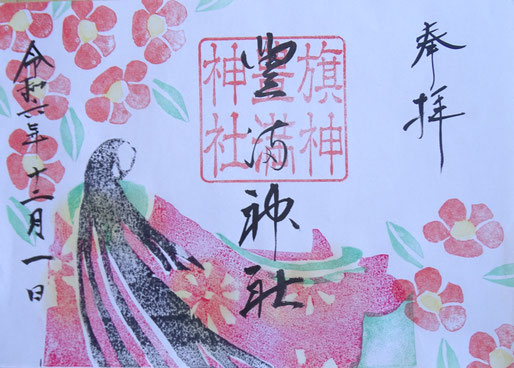 奉拝
豐満神社
旗神
豊満
神社
令和六年十二月一日